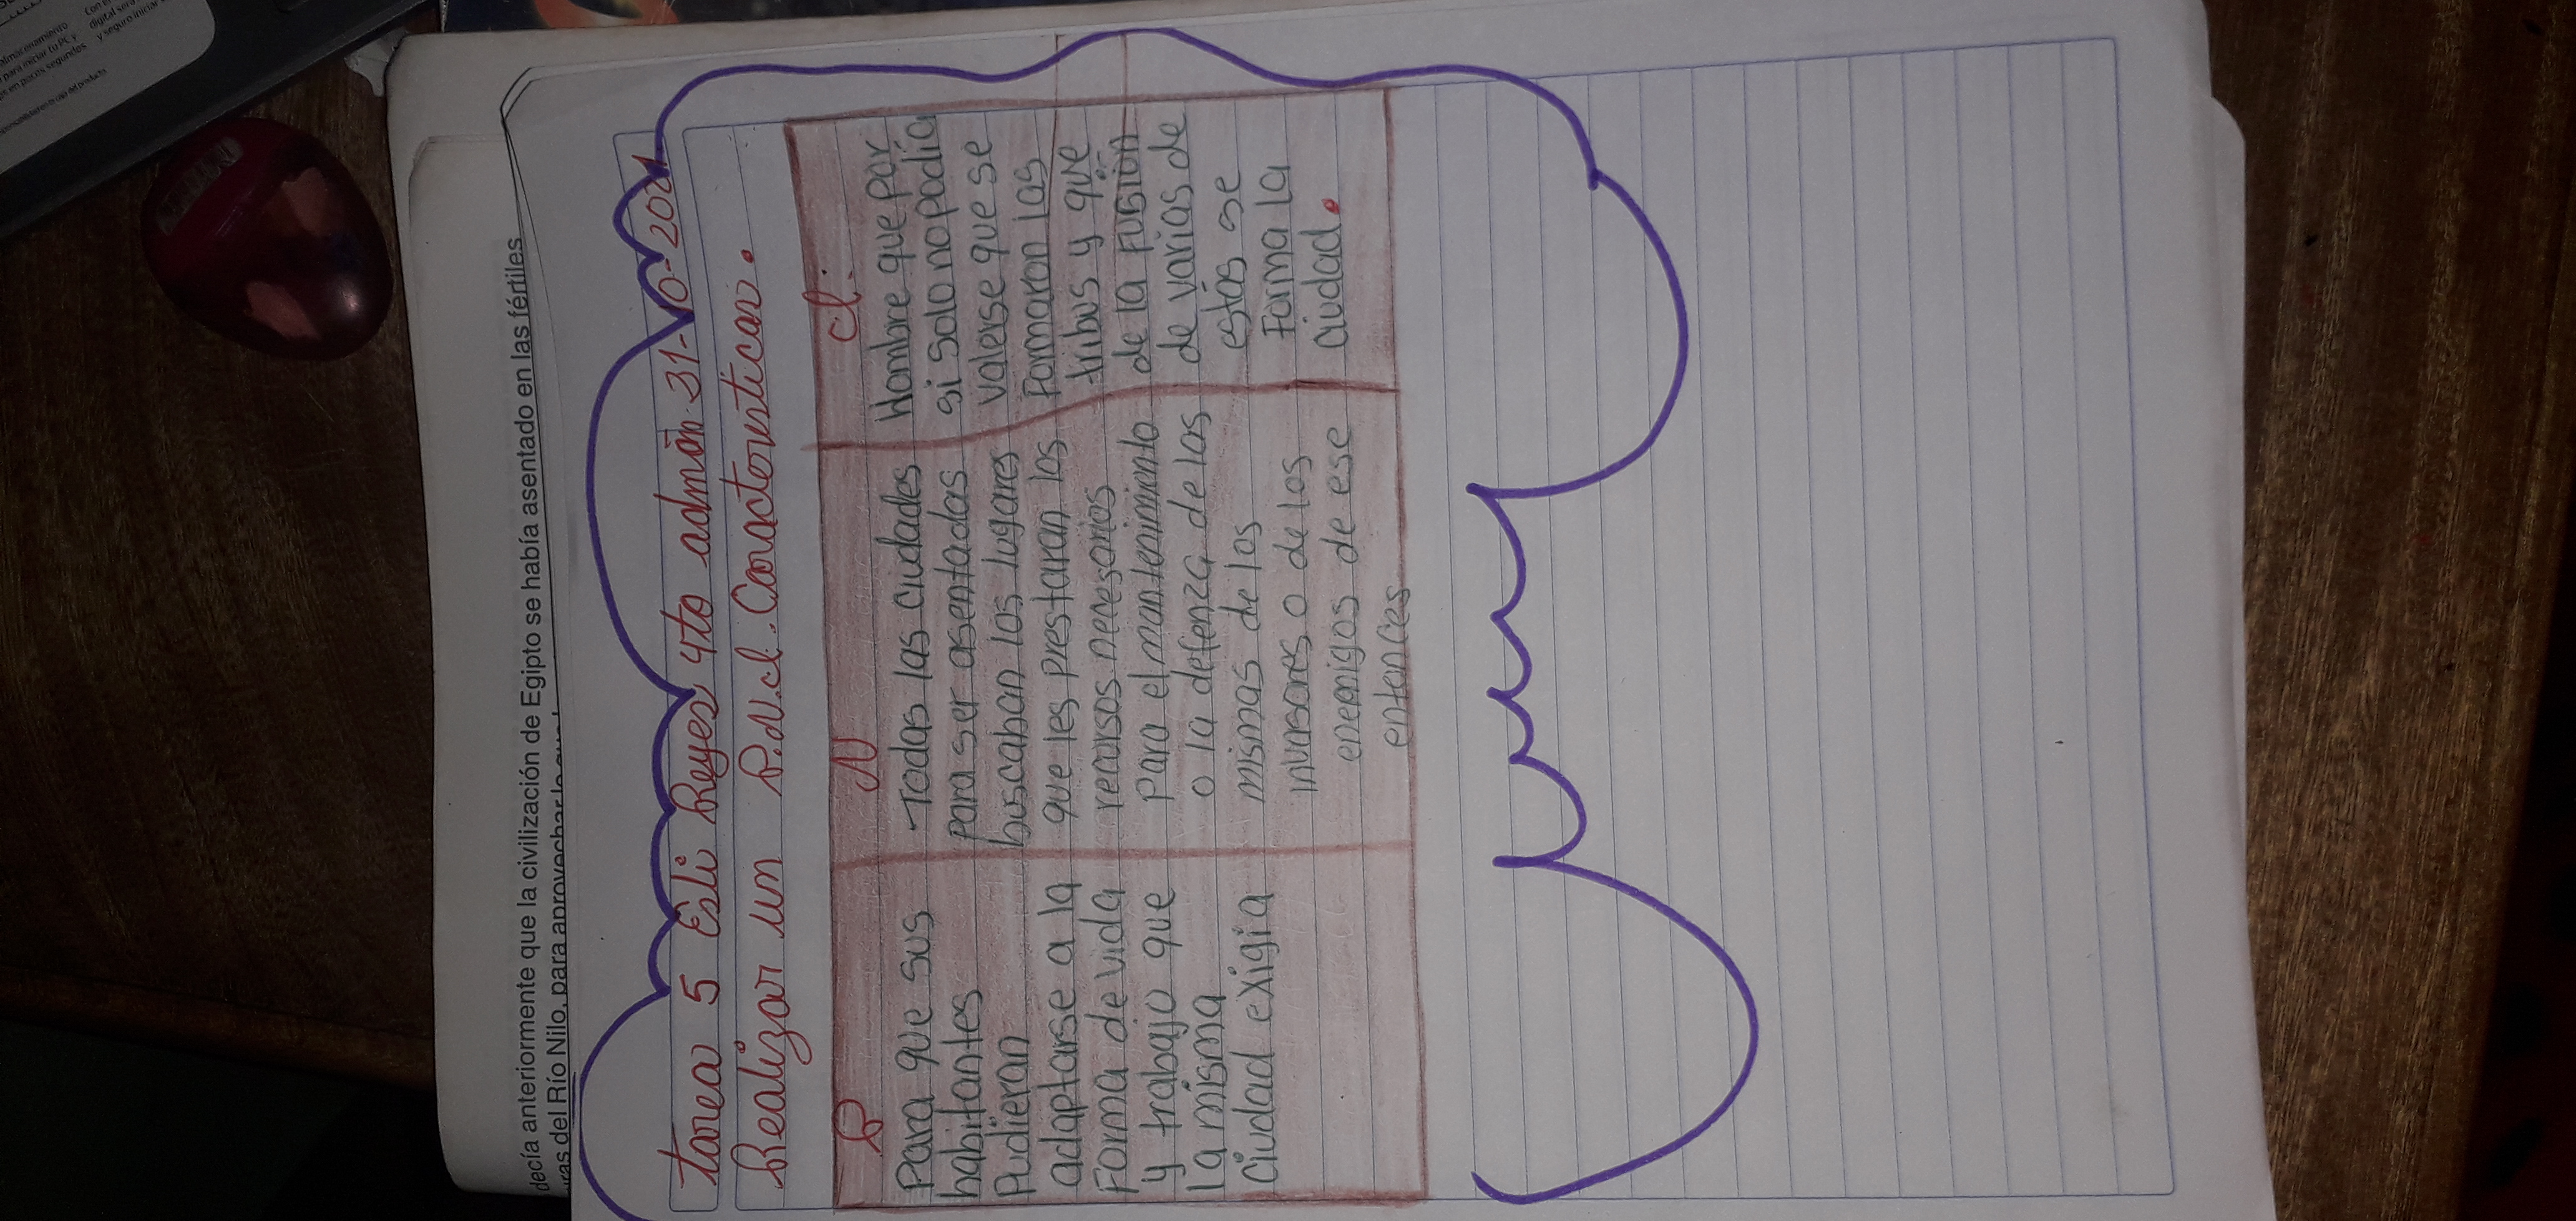 almacenamiento
para iniciar tu PC y
en pocos segundos
y seguro iniciar
decía anteriormente que la civilización de Egipto se había asentado en las fértiles
del Río Nilo, para aprovechar
tarea 5 Esli Reyes 4to admón 31-10-2021
Realizar un P.N.cl. Caracteristicas.
P
Para que sus
habitantes
Pudieran
adaptarse a la
Forma de vida
y trabajo que
la misma
ciudad exigia
N
-Todas las ciudades
para ser asentadas
buscaban los lugares
que les prestaran los
recursos necesarios
para el mantenimiento
o la defenza de las
mismas de los
invasores o de los
enemigos de ese
entonces
cl:
Hombre que por
si solo no podía
valerse que se
Formaron las
tribus y que
de la Fusión
de varias de
estás se
Forma la
ciudad.